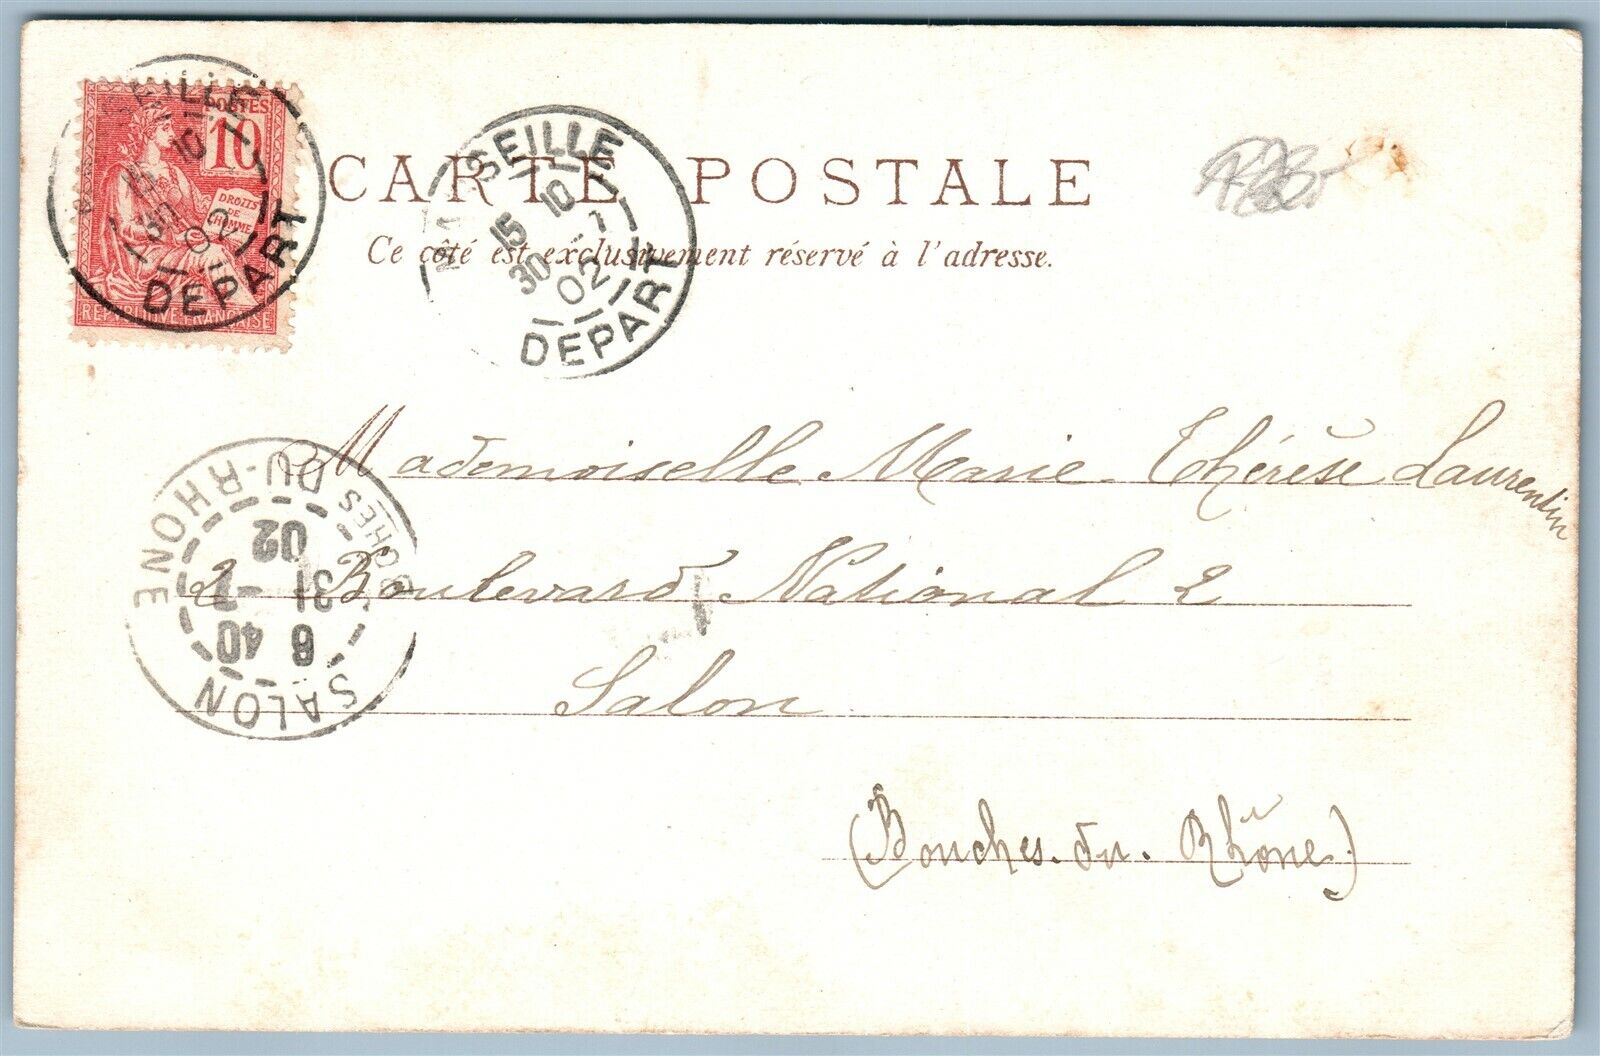 POSTES
10
DROITS
DE
L'HOMME
REPUBLIQUE FRANÇAISE
SEILLE
15 10
30 -1
02
DEPART
CARTE POSTALE
Ce côté est exclusivement réservé à l'adresse.
Mademoiselle Marie-Thérèse Laurentin
2 Boulevard National 2
Salon
(Bouches-du-Rhône)
SALON
6 40
31 -1
02
BCHES DU-RHONE